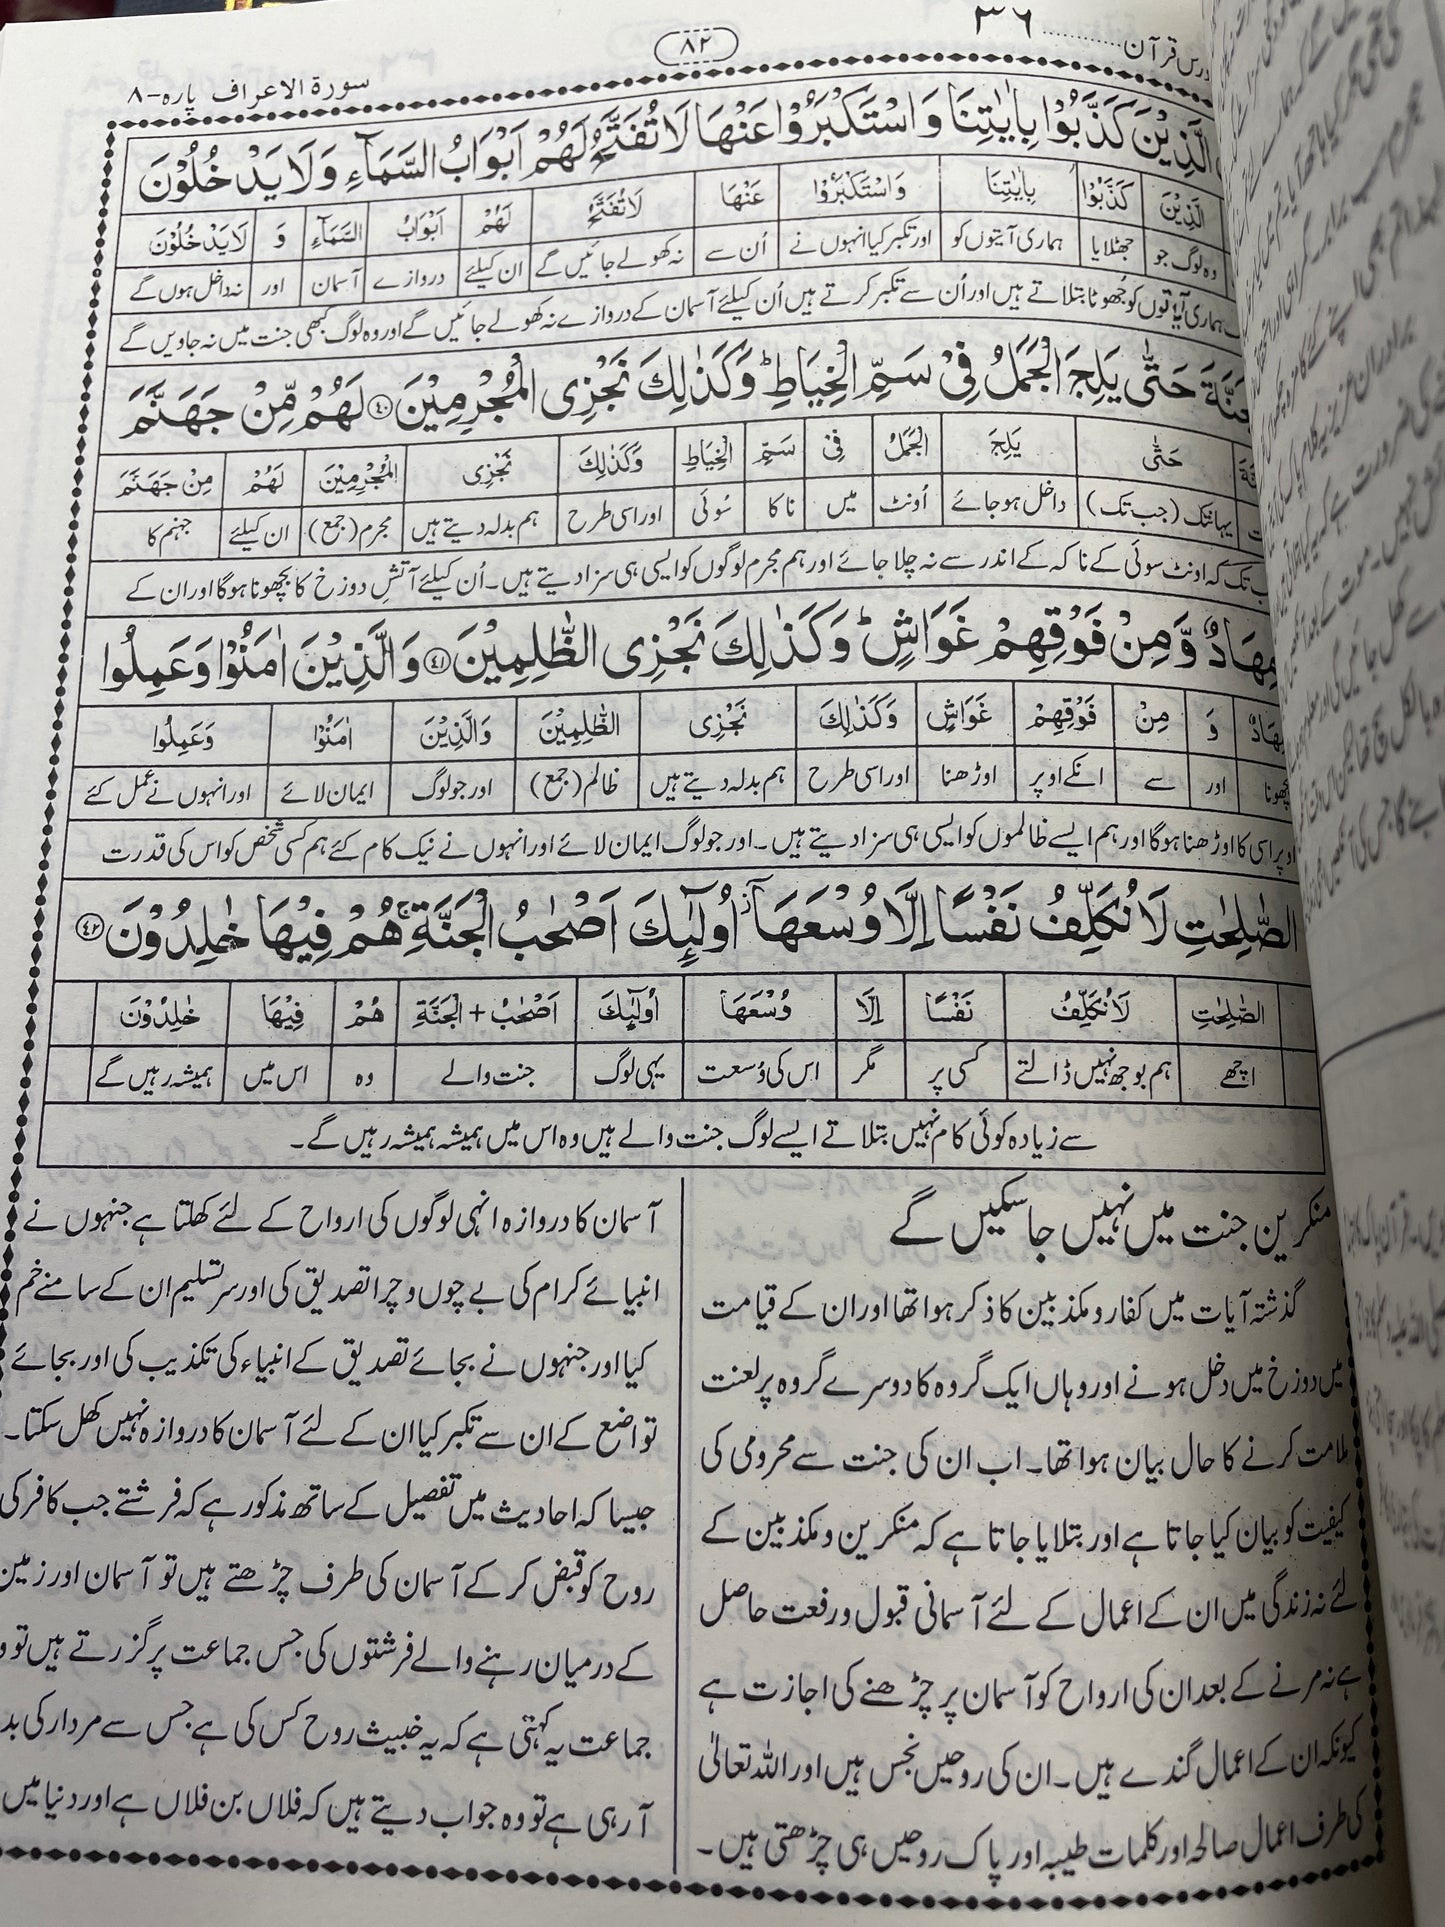 درس قرآن............۳۶
۸۲
سورۃ الاعراف پارہ-۸
الَّذِيْنَ كَذَّبُوْا بِاٰيٰتِنَا وَ اسْتَكْبَرُوْا عَنْهَا لَا تُفَتَّحُ لَهُمْ اَبْوَابُ السَّمَآءِ وَ لَا يَدْخُلُوْنَ
الَّذِيْنَ كَذَّبُوْا بِاٰيٰتِنَا وَاسْتَكْبَرُوْا عَنْهَا لَا تُفَتَّحُ لَهُمْ اَبْوَابُ السَّمَآءِ وَ لَا يَدْخُلُوْنَ
وہ لوگ جو جھٹلایا ہماری آیتوں کو اور تکبر کیا انہوں نے اُن سے نہ کھولے جائیں گے ان کیلئے دروازے آسمان اور نہ داخل ہوں گے
ہماری آیتوں کو جُھوٹا بتلاتے ہیں اور اُن سے تکبر کرتے ہیں اُن کیلئے آسمان کے دروازے نہ کھولے جائیں گے اور وہ لوگ کبھی جنت میں نہ جاویں گے
حَتّٰى يَلِجَ الْجَمَلُ فِىْ سَمِّ الْخِيَاطِ ؕ وَ كَذٰلِكَ نَجْزِى الْمُجْرِمِيْنَ ۝۴۰ لَهُمْ مِّنْ جَهَنَّمَ
حَتّٰى يَلِجَ الْجَمَلُ فِىْ سَمِّ الْخِيَاطِ وَكَذٰلِكَ نَجْزِى الْمُجْرِمِيْنَ لَهُمْ مِنْ جَهَنَّمَ
یہانتک (جب تک) داخل ہو جائے اُونٹ میں ناکا سُوئی اور اسی طرح ہم بدلہ دیتے ہیں مجرم (جمع) ان کیلئے جہنم کا
تک کہ اونٹ سوئی کے ناکہ کے اندر سے نہ چلا جائے اور ہم مجرم لوگوں کو ایسی ہی سزا دیتے ہیں۔ اُن کیلئے آتشِ دوزخ کا بچھونا ہوگا اور ان کے
مِهَادٌ وَّ مِنْ فَوْقِهِمْ غَوَاشٍ ؕ وَ كَذٰلِكَ نَجْزِى الظّٰلِمِيْنَ ۝۴۱ وَ الَّذِيْنَ اٰمَنُوْا وَ عَمِلُوا
مِهَادٌ وَ مِنْ فَوْقِهِمْ غَوَاشٍ وَكَذٰلِكَ نَجْزِى الظّٰلِمِيْنَ وَالَّذِيْنَ اٰمَنُوْا وَعَمِلُوا
بچھونا اور سے انکے اوپر اوڑھنا اور اسی طرح ہم بدلہ دیتے ہیں ظالم (جمع) اور جو لوگ ایمان لائے اور انہوں نے عمل کئے
اوپر اسی کا اوڑھنا ہوگا اور ہم ایسے ظالموں کو ایسی ہی سزا دیتے ہیں۔ اور جو لوگ ایمان لائے اور انہوں نے نیک کام کئے ہم کسی شخص کو اس کی قدرت
الصّٰلِحٰتِ لَا نُكَلِّفُ نَفْسًا اِلَّا وُسْعَهَاۤ اُولٰٓئِكَ اَصْحٰبُ الْجَنَّةِ هُمْ فِيْهَا خٰلِدُوْنَ ۝۴۲
الصّٰلِحٰتِ لَا نُكَلِّفُ نَفْسًا اِلَّا وُسْعَهَا اُولٰٓئِكَ اَصْحٰبُ + الْجَنَّةِ هُمْ فِيْهَا خٰلِدُوْنَ
اچھے ہم بوجھ نہیں ڈالتے کسی پر مگر اس کی وُسعت یہی لوگ جنت والے وہ اس میں ہمیشہ رہیں گے
سے زیادہ کوئی کام نہیں بتلاتے ایسے لوگ جنت والے ہیں وہ اس میں ہمیشہ ہمیشہ رہیں گے۔
منکرین جنت میں نہیں جا سکیں گے
گذشتہ آیات میں کفار و مکذبین کا ذکر ہوا تھا اور ان کے قیامت
میں دوزخ میں دخل ہونے اور وہاں ایک گروہ کا دوسرے گروہ پر لعنت
ملامت کرنے کا حال بیان ہوا تھا۔ اب ان کی جنت سے محرومی کی
کیفیت کو بیان کیا جاتا ہے اور بتلایا جاتا ہے کہ منکرین و مکذبین کے
لئے نہ زندگی میں ان کے اعمال کے لئے آسمانی قبول و رفعت حاصل
ہے نہ مرنے کے بعد ان کی ارواح کو آسمان پر چڑھنے کی اجازت ہے
کیونکہ ان کے اعمال گندے ہیں۔ ان کی روحیں نجس ہیں اور اللہ تعالیٰ
کی طرف اعمال صالحہ اور کلمات طیبہ اور پاک روحیں ہی چڑھتی ہیں۔
آسمان کا دروازہ انہی لوگوں کی ارواح کے لئے کھلتا ہے جنہوں نے
انبیائے کرام کی بے چوں و چرا تصدیق کی اور سر تسلیم ان کے سامنے خم
کیا اور جنہوں نے بجائے تصدیق کے انبیاء کی تکذیب کی اور بجائے
تواضع کے ان سے تکبر کیا ان کے لئے آسمان کا دروازہ نہیں کھل سکتا۔
جیسا کہ احادیث میں تفصیل کے ساتھ مذکور ہے کہ فرشتے جب کافر کی
روح کو قبض کر کے آسمان کی طرف چڑھتے ہیں تو آسمان اور زمین
کے درمیان رہنے والے فرشتوں کی جس جماعت پر گزرتے ہیں تو و
جماعت یہ کہتی ہے کہ یہ خبیث روح کس کی ہے جس سے مردار کی بد
آ رہی ہے تو وہ جواب دیتے ہیں کہ فلاں بن فلاں ہے اور دنیا میں